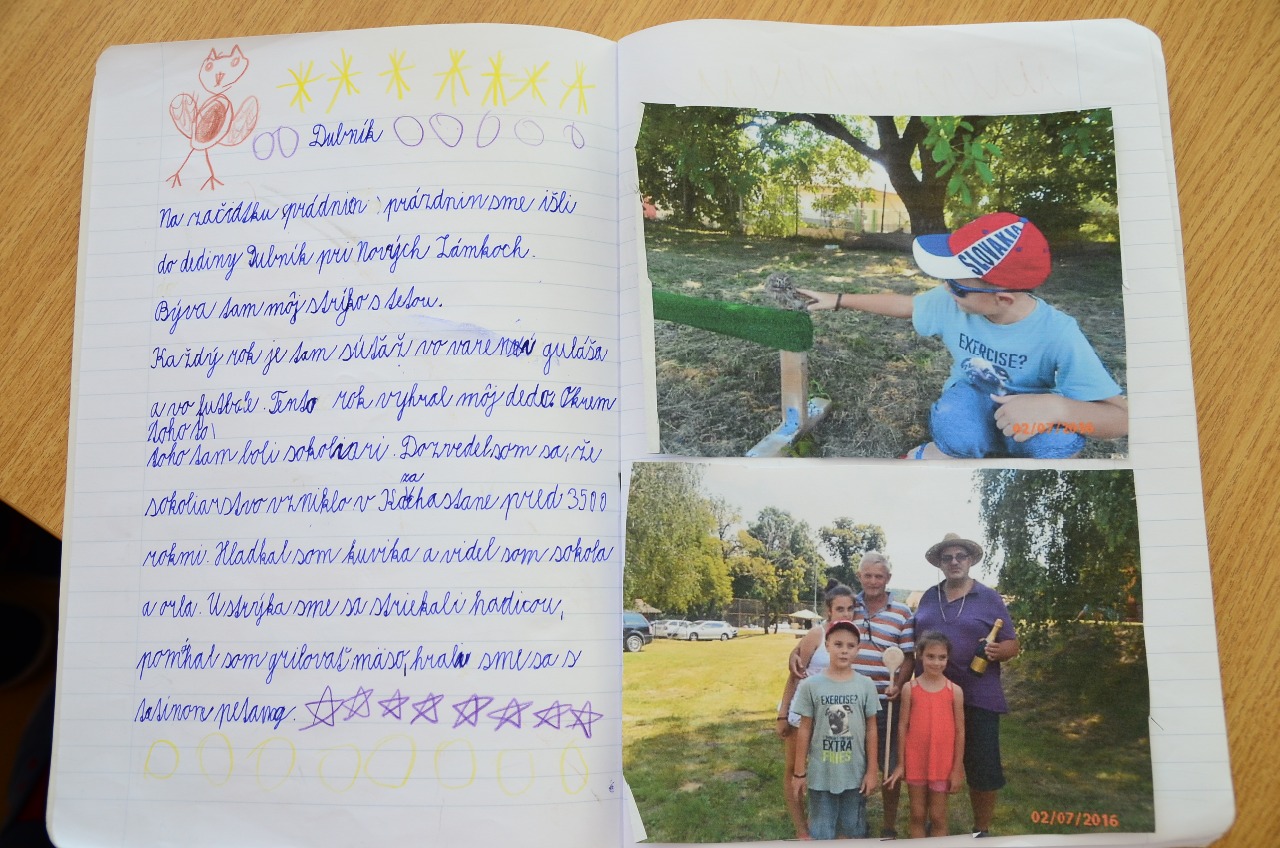 Dubník
Na začiatku (prádnin) prázdnin sme išli
do dediny Dubník pri Nových Zámkoch.
Býva tam môj strýko s tetou.
Každý rok je tam súťaž vo varení guláša
a vo futbale. Tento rok vyhral môj dedo. Okrem
toho to
toho tam boli sokoliari. Dozvedel som sa, že
za
sokoliarstvo vzniklo v Kachastane pred 3500
rokmi. Hladkal som kuvika a videl som sokola
a orla. U strýka sme sa striekali hadicou,
pomáhal som grilovať mäso, hrali sme sa s
tatinom petang.
SLOVAKIA
EXERCISE?
02/07/2016
EXERCISE?
EXTRA
FRIES
02/07/2016